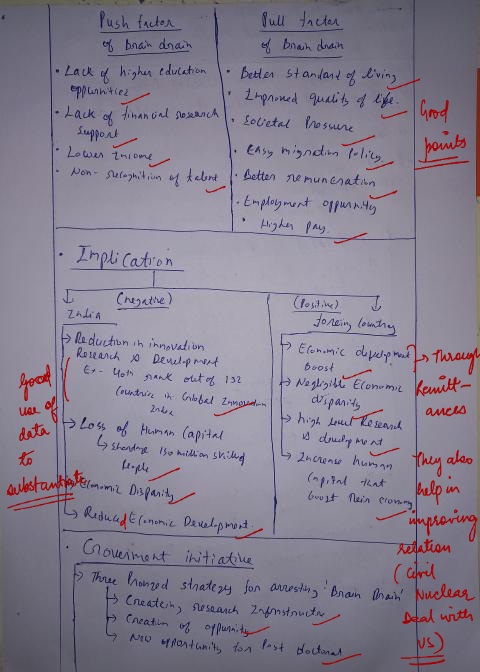 Push factor
of Brain drain
• Lack of higher education
oppurnities
• Lack of financial research
support
• Lower Income
• Non-recognition of talent
Pull factor
of Brain drain
• Better standard of living
• Improved quality of life.
• Societal Pressure
• Easy migration Policy
• Better remuneration
• Employment oppurnity
• Higher pay.
Good
points
• Implication
(negative)
India
→ Reduction in innovation
Research & Development
Ex- 40th rank out of 132
Countries in Global Innovation
Index
→ Loss of Human Capital
↳ shortage 150 million skilled
People
→ Economic Disparity
→ Reduced Economic Development.
Good
use of
data
to
substantiate
(Positive)
foreing country
→ Economic development
boost
→ Negligible Economic
disparity
→ high level Research
& development
→ Increase human
Capital that
boost their economy
→ Through
Remitt-
ances
They also
help in
improving
relation
(Civil
Nuclear
Deal with
US)
• Government initiative
→ Three Pronged strategy for arresting 'Brain Drain'
→ Createing research Infrastructre
→ Creation of oppurnity
→ New opportunity for Post doctoral